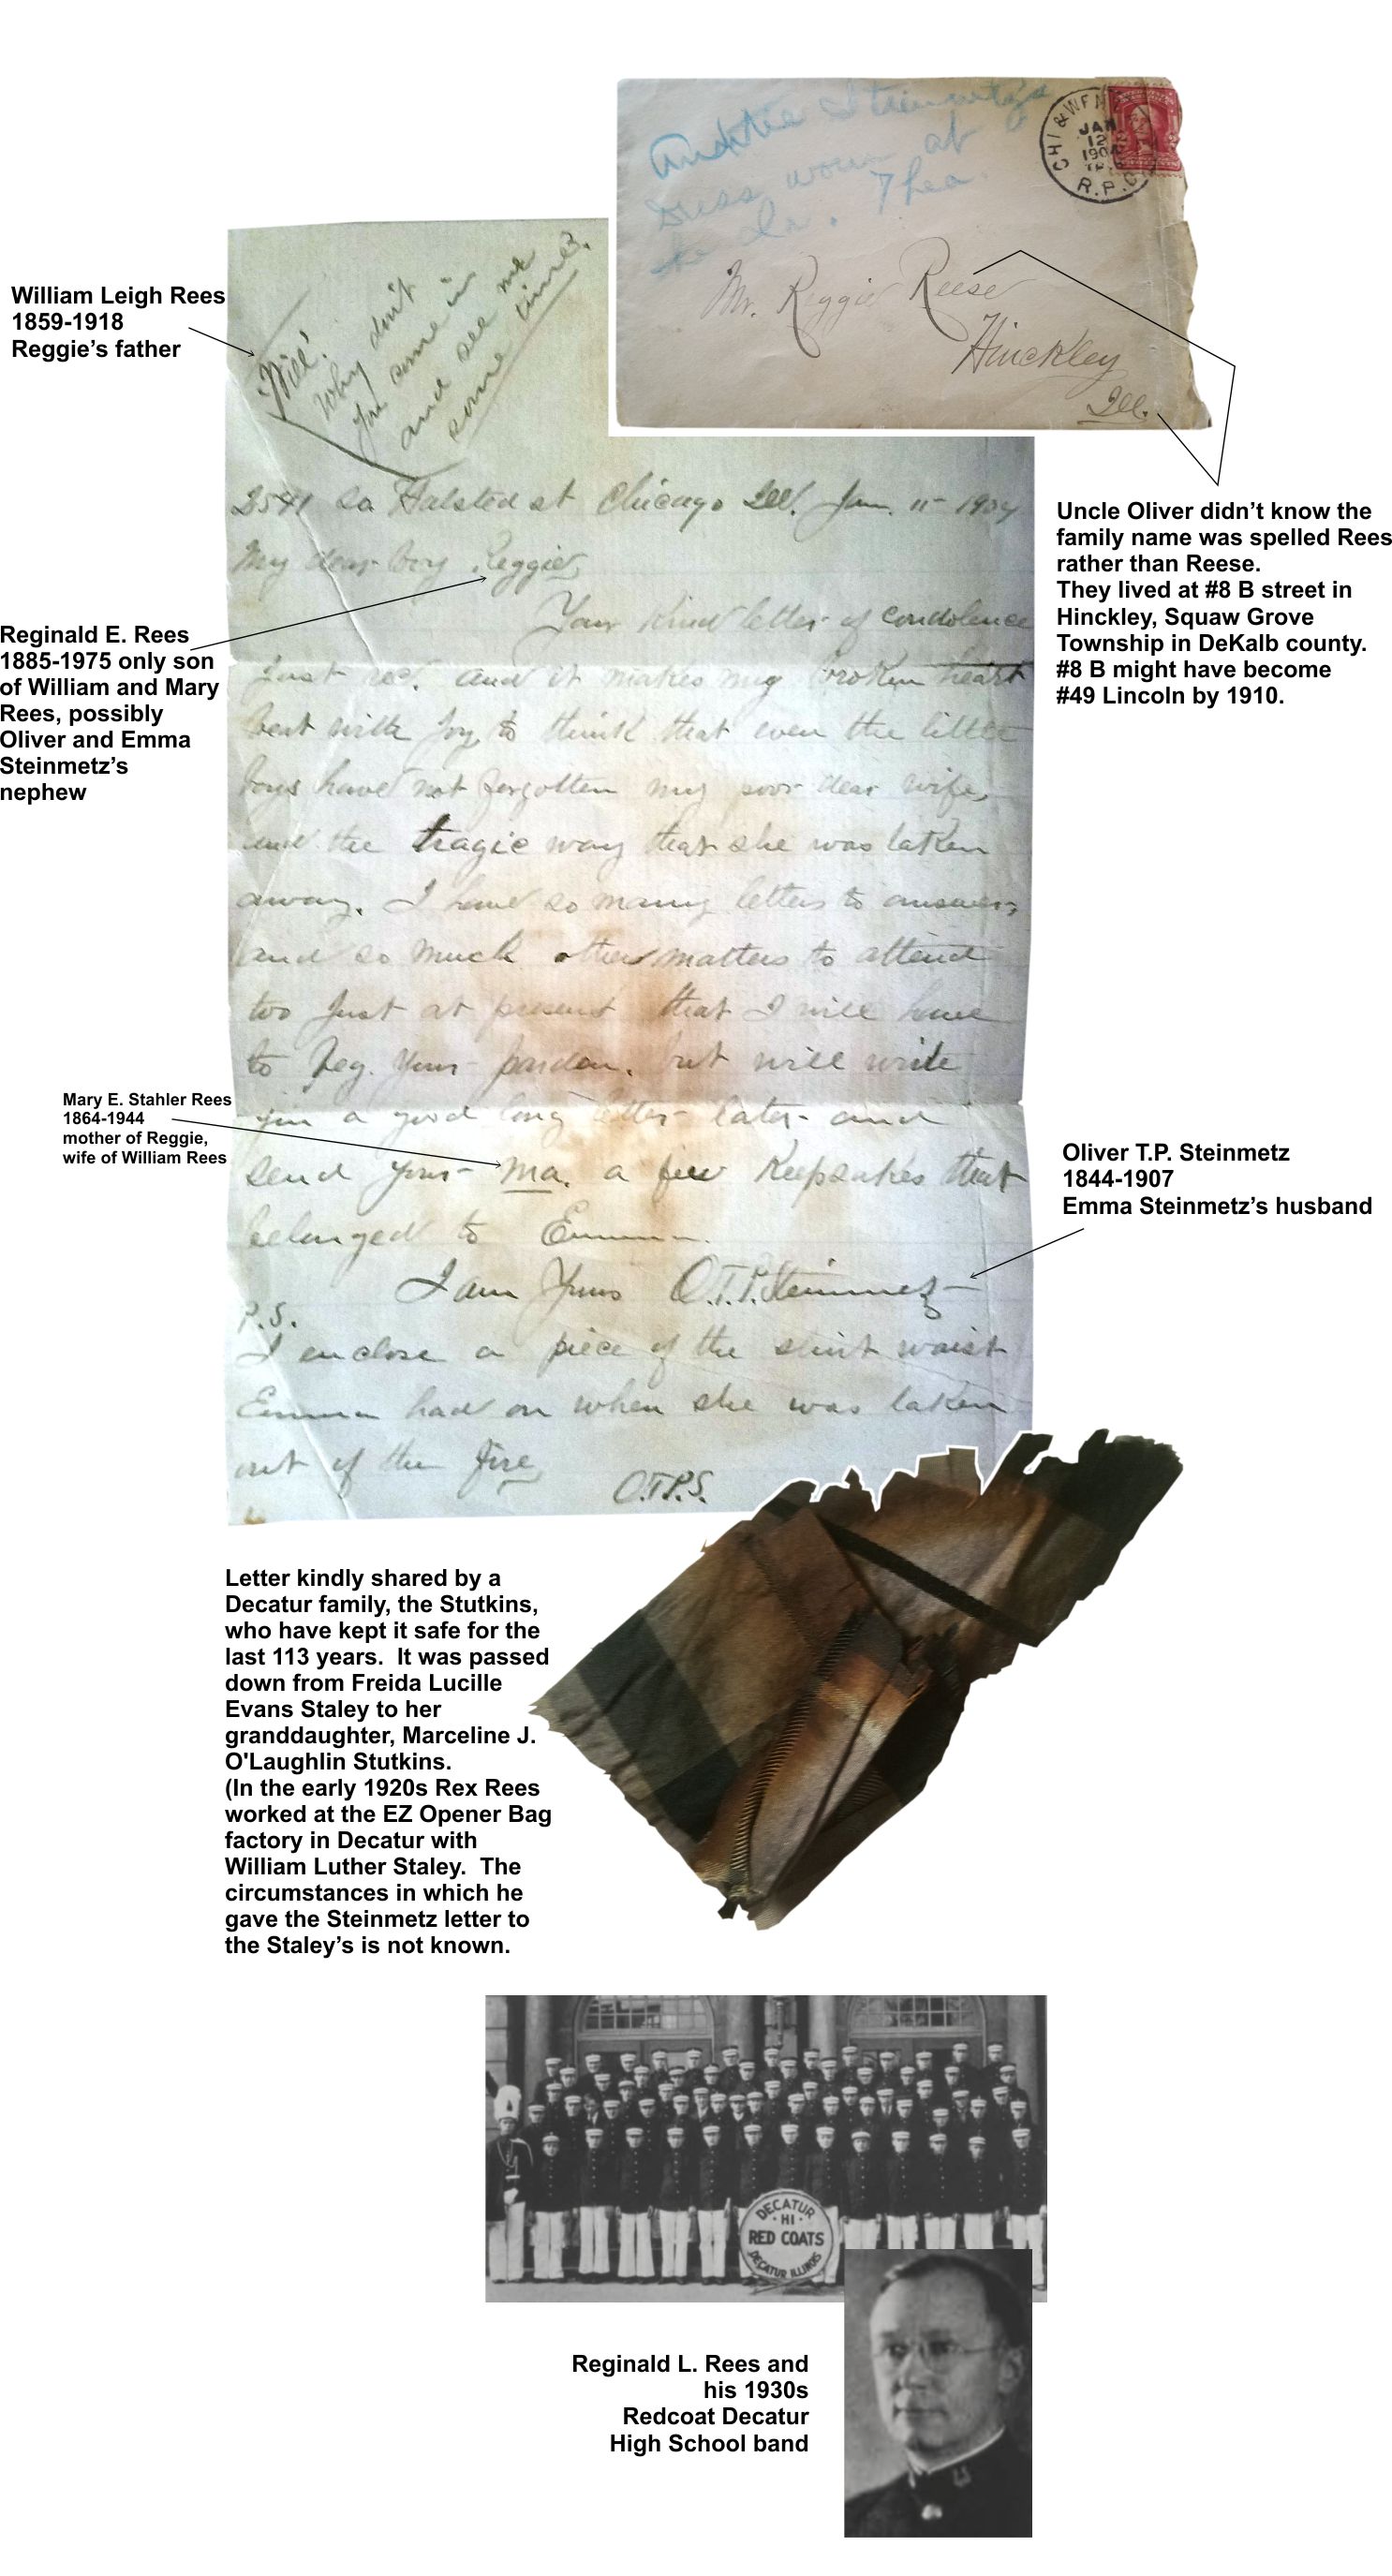 Auntie Steinmetz's
Dress worn at
the Ir. Thea.
CHI & W
JAN
12
1904
R.P.O.
Mr. Reggie Reese
Hinckley
Ill.
William Leigh Rees
1859-1918
Reggie’s father
Will.
Why don't
you come in
and see me
some time.
2541 So Halsted st Chicago Ill. Jan. 11- 1904
My dear boy Reggie,
Your kind letter of condolence
just rec. and it makes my broken heart
beat with joy to think that even the little
boys have not forgotten my poor dear wife,
and the tragic way that she was taken
away. I have so many letters to answer,
and so much other matters to attend
too just at present that I will have
to beg your pardon. but will write
you a good long letter later and
send your Ma. a few Keepsakes that
belonged to Emma.
I am Yours O.T.P. Steinmetz
P.S.
I enclose a piece of the shirt waist
Emma had on when she was taken
out of the fire
O.T.P.S.
Uncle Oliver didn’t know the
family name was spelled Rees
rather than Reese.
They lived at #8 B street in
Hinckley, Squaw Grove
Township in DeKalb county.
#8 B might have become
#49 Lincoln by 1910.
Reginald E. Rees
1885-1975 only son
of William and Mary
Rees, possibly
Oliver and Emma
Steinmetz’s
nephew
Mary E. Stahler Rees
1864-1944
mother of Reggie,
wife of William Rees
Oliver T.P. Steinmetz
1844-1907
Emma Steinmetz’s husband
Letter kindly shared by a
Decatur family, the Stutkins,
who have kept it safe for the
last 113 years.  It was passed
down from Freida Lucille
Evans Staley to her
granddaughter, Marceline J.
O'Laughlin Stutkins.
(In the early 1920s Rex Rees
worked at the EZ Opener Bag
factory in Decatur with
William Luther Staley.  The
circumstances in which he
gave the Steinmetz letter to
the Staley’s is not known.
DECATUR
· HI ·
RED COATS
DECATUR ILLINOIS
Reginald L. Rees and
his 1930s
Redcoat Decatur
High School band